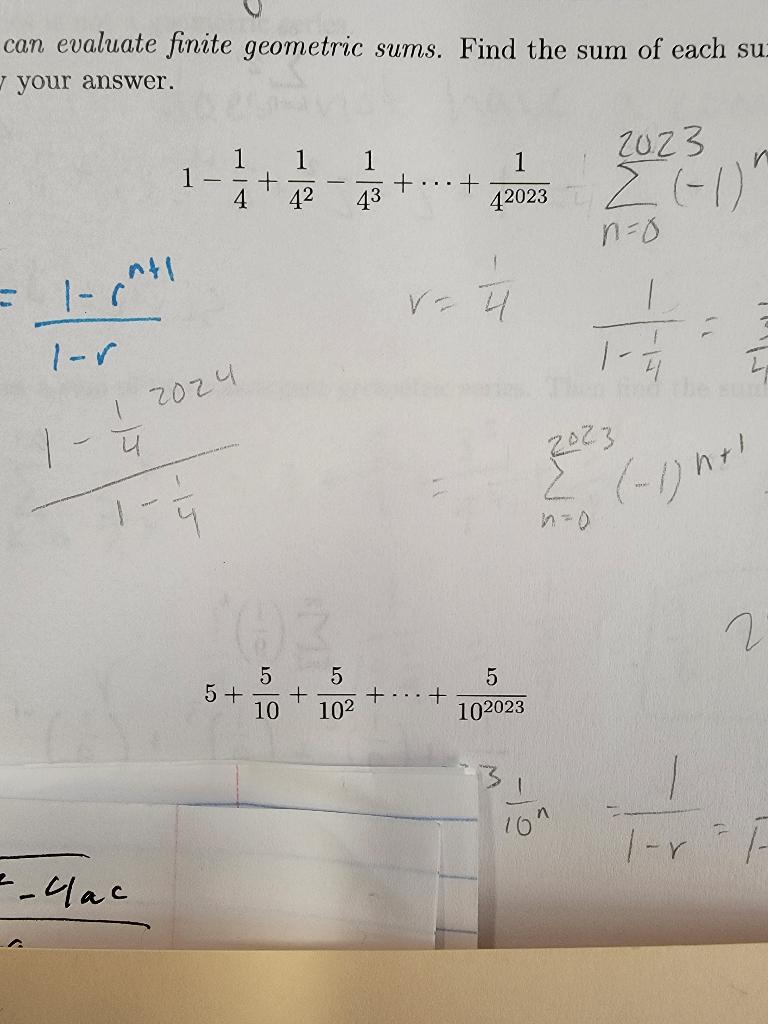 can evaluate finite geometric sums. Find the sum of each su
y your answer.
1 - 1/4 + 1/4² - 1/4³ + ··· + 1/4²⁰²³
2023 Σ n=0 (-1)ⁿ
= 1-rⁿ⁺¹ / 1-r
r = 1/4
1 / 1-1/4 = 
1 - 1/4 ²⁰²⁴ / 1 - 1/4
= 2023 Σ n=0 (-1)ⁿ⁺¹
2
5 + 5/10 + 5/10² + ··· + 5/10²⁰²³
3 1/10ⁿ = 1/1-r =
-4ac